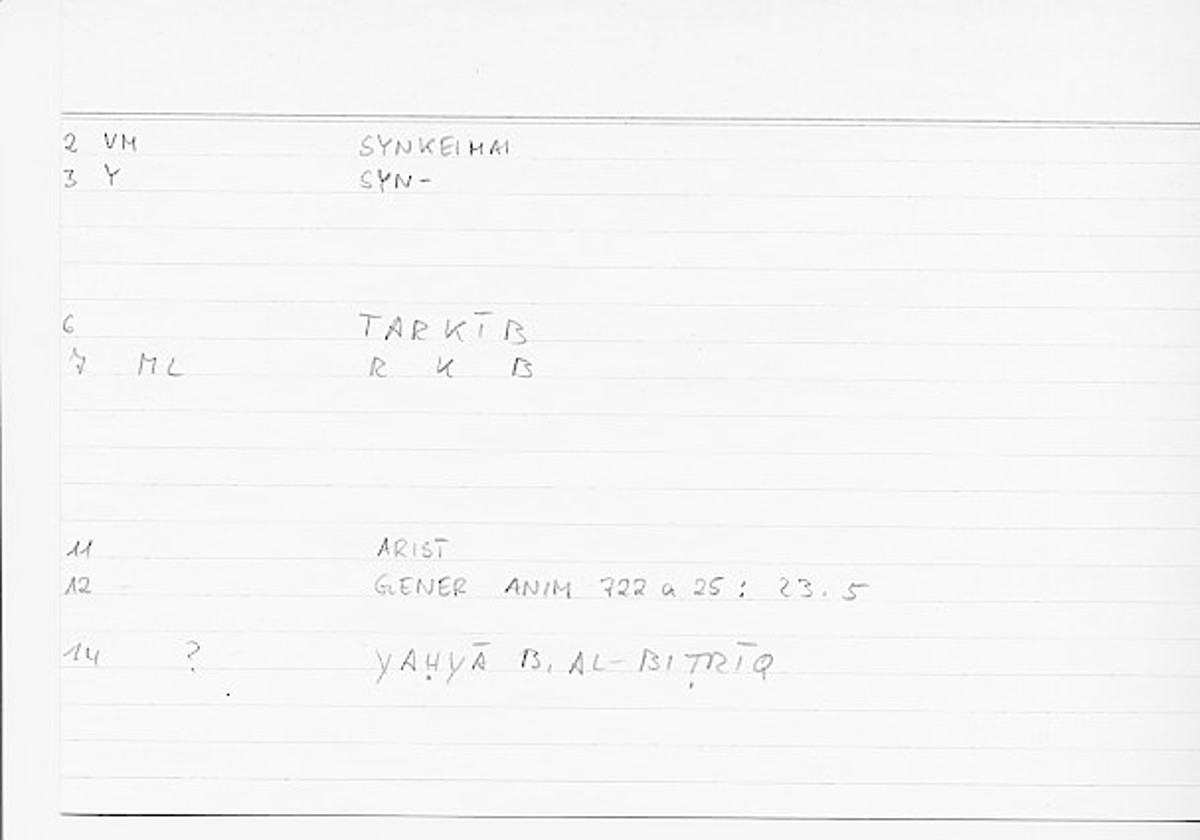 2 VM SYNKEIMAI
3 Y SYN-
6 TARKĪB
7 ML R K B
11 ARIST
12 GENER ANIM 722 a 25 : 23.5
14 ? YAḤYĀ B. AL-BIṬRĪQ